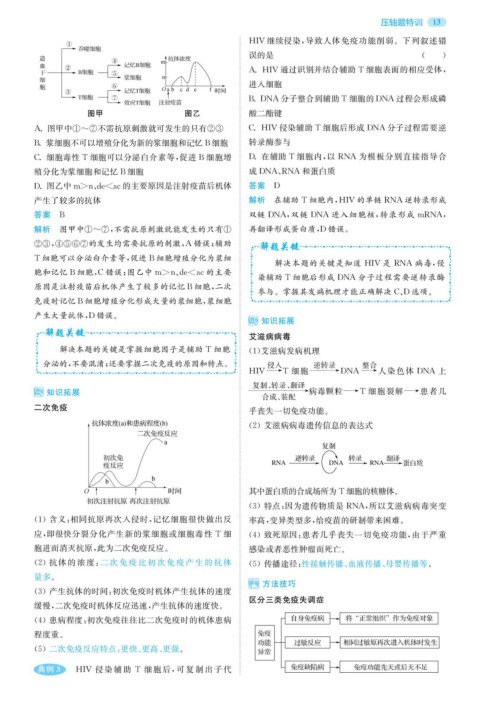 压轴题特训 13
① 吞噬细胞
造血干细胞
② B细胞
④ 记忆B细胞
⑤ 浆细胞
③ T细胞
⑥ 记忆T细胞
⑦ 效应T细胞
图甲
抗体浓度
m
n
O a b c d e f 时间
注射疫苗
图乙
A. 图甲中①~⑦不需抗原刺激就可发生的只有②③
B. 浆细胞不可以增殖分化为新的浆细胞和记忆 B 细胞
C. 细胞毒性 T 细胞可以分泌白介素等,促进 B 细胞增
殖分化为浆细胞和记忆 B 细胞
D. 图乙中 m>n、de<ac 的主要原因是注射疫苗后机体
产生了较多的抗体
答案 B
解析 图甲中①~⑦,不需抗原刺激就能发生的只有①
②③,④⑤⑥⑦的发生均需要抗原的刺激,A 错误;辅助
T 细胞可以分泌白介素等,促进 B 细胞增殖分化为浆细
胞和记忆 B 细胞,C 错误;图乙中 m>n、de<ac 的主要
原因是注射疫苗后机体产生了较多的记忆 B 细胞,二次
免疫时记忆 B 细胞增殖分化形成大量的浆细胞,浆细胞
产生大量抗体,D 错误。
解题关键
解决本题的关键是掌握细胞因子是辅助 T 细胞
分泌的,不要混淆;还要掌握二次免疫的原因和特点。
知识拓展
二次免疫
抗体浓度(a)和患病程度(b)
二次免疫反应
a
初次免疫反应
b
b
O 时间
初次注射抗原 再次注射抗原
(1) 含义:相同抗原再次入侵时,记忆细胞很快做出反
应,即很快分裂分化产生新的浆细胞或细胞毒性 T 细
胞进而消灭抗原,此为二次免疫反应。
(2) 抗体的浓度:二次免疫比初次免疫产生的抗体
量多。
(3) 产生抗体的时间:初次免疫时机体产生抗体的速度
缓慢,二次免疫时机体反应迅速,产生抗体的速度快。
(4) 患病程度:初次免疫往往比二次免疫时的机体患病
程度重。
(5) 二次免疫反应特点:更快、更高、更强。
典例 3 HIV 侵染辅助 T 细胞后,可复制出子代
HIV 继续侵染,导致人体免疫功能削弱。下列叙述错
误的是 ( )
A. HIV 通过识别并结合辅助 T 细胞表面的相应受体,
进入细胞
B. DNA 分子整合到辅助 T 细胞的 DNA 过程会形成磷
酸二酯键
C. HIV 侵染辅助 T 细胞后形成 DNA 分子过程需要逆
转录酶参与
D. 在辅助 T 细胞内,以 RNA 为模板分别直接指导合
成 DNA、RNA 和蛋白质
答案 D
解析 在辅助 T 细胞内,HIV 的单链 RNA 逆转录形成
双链 DNA,双链 DNA 进入细胞核,转录形成 mRNA,
再翻译形成蛋白质,D 错误。
解题关键
解决本题的关键是知道 HIV 是 RNA 病毒,侵
染辅助 T 细胞后形成 DNA 分子过程需要逆转录酶
参与。掌握其发病机理才能正确解决 C、D 选项。
知识拓展
艾滋病病毒
(1)艾滋病发病机理
HIV 侵入→T 细胞 逆转录→DNA 整合→人染色体 DNA 上
复制、转录、翻译 合成、装配→病毒颗粒→T 细胞裂解→患者几
乎丧失一切免疫功能。
(2) 艾滋病病毒遗传信息的表达式
复制
RNA 逆转录→ DNA 转录→ RNA 翻译→ 蛋白质
其中蛋白质的合成场所为 T 细胞的核糖体。
(3) 特点:因为遗传物质是 RNA,所以艾滋病病毒突变
率高,变异类型多,给疫苗的研制带来困难。
(4) 致死原因:患者几乎丧失一切免疫功能,由于严重
感染或者恶性肿瘤而死亡。
(5) 传播途径:性接触传播、血液传播、母婴传播等。
方法技巧
区分三类免疫失调症
免疫功能异常
自身免疫病→将“正常组织”作为免疫对象
过敏反应→相同过敏原再次进入机体时发生
免疫缺陷病→免疫功能先天或后天不足